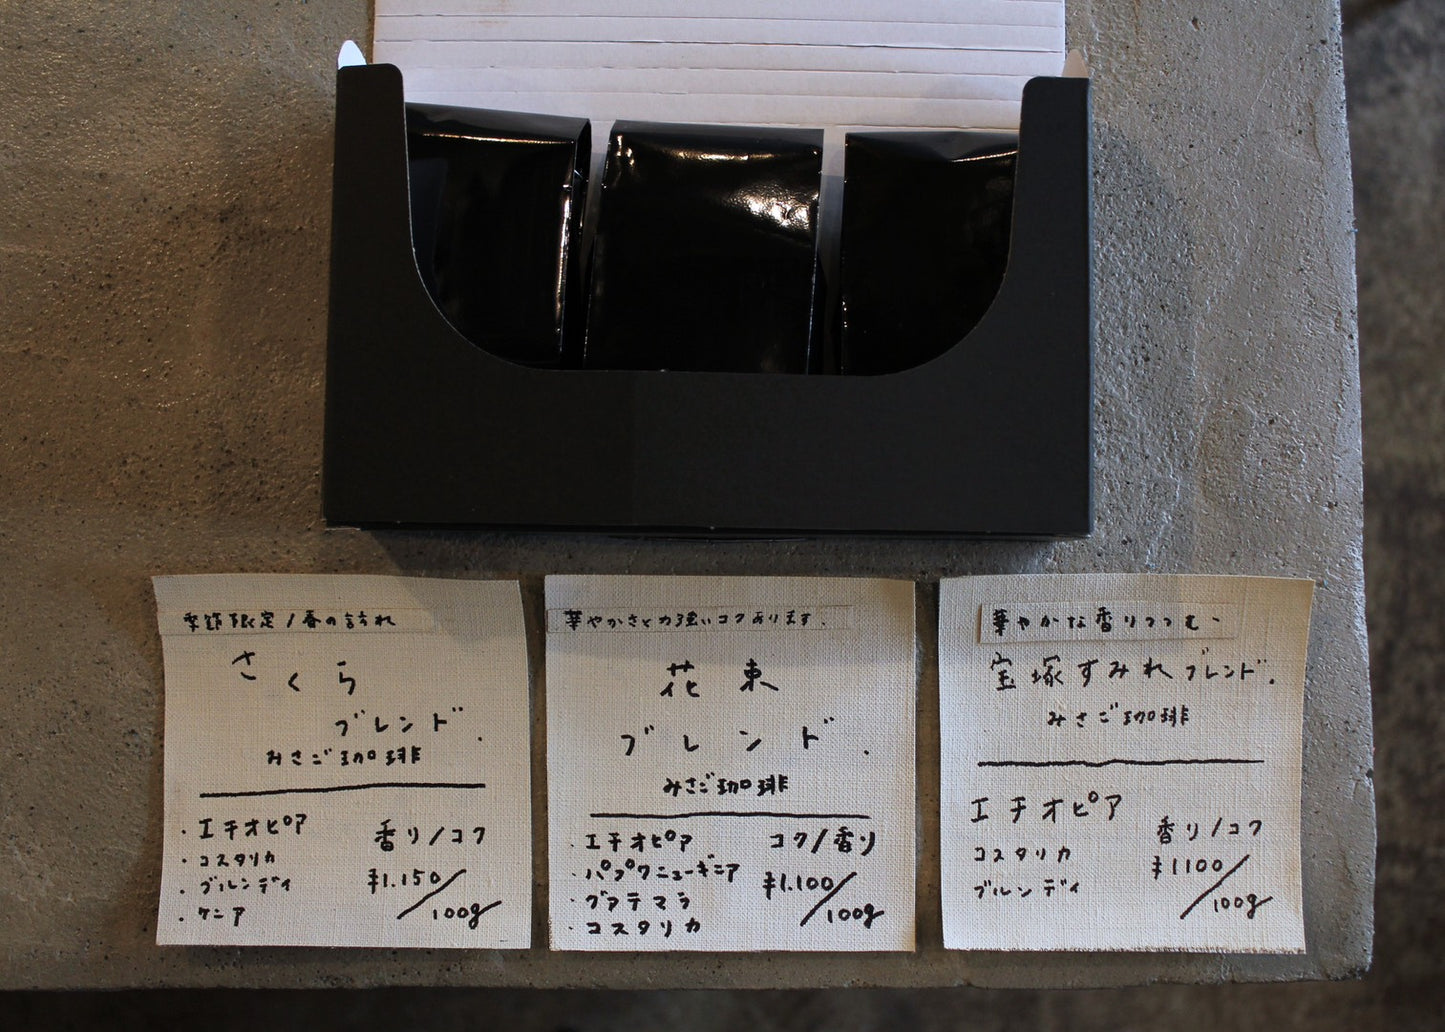 季節限定/春の訪れ
さくら
ブレンド.
みさご珈琲
・エチオピア
・コスタリカ
・ブルンディ
・ケニア
香り/コク
¥1.150/100g
華やかさと力強いコクあります.
花束
ブレンド.
みさご珈琲
・エチオピア
・パプワニューギニア
・グァテマラ
・コスタリカ
コク/香り
¥1.100/100g
華やかな香りつつむ、
宝塚すみれブレンド.
みさご珈琲
エチオピア
コスタリカ
ブルンディ
香り/コク
¥1100/100g